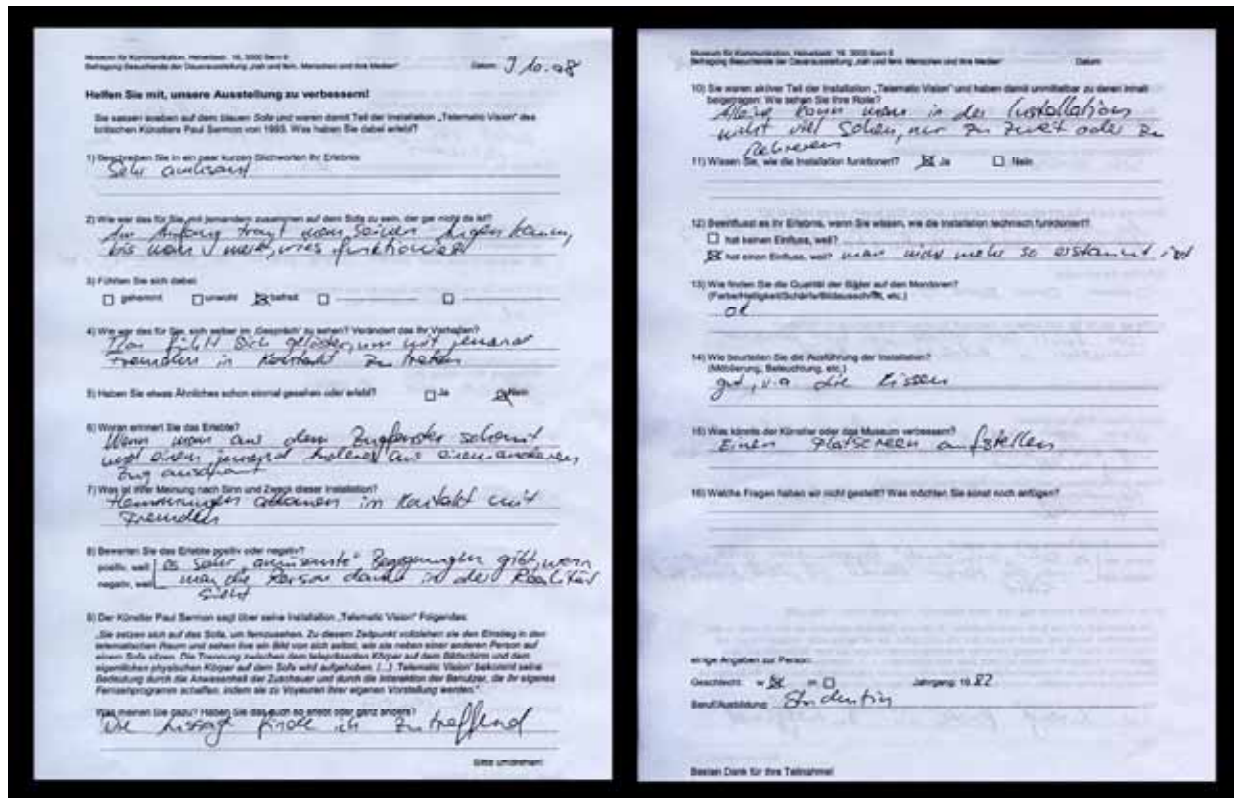 Museum für Kommunikation, Helvetiastr. 16, 3000 Bern 6
Befragung Besuchende der Dauerausstellung „nah und fern. Menschen und ihre Medien“ Datum: 9.10.08
Helfen Sie mit, unsere Ausstellung zu verbessern!
Sie sassen soeben auf dem blauen Sofa und waren damit Teil der Installation „Telematic Vision“ des
britischen Künstlers Paul Sermon von 1993. Was haben Sie dabei erlebt?
1) Beschreiben Sie in ein paar kurzen Stichworten Ihr Erlebnis
Sehr amüsant
2) Wie war das für Sie, mit jemandem zusammen auf dem Sofa zu sein, der gar nicht da ist?
Am Anfang traut man seinen Augen kaum,
bis man merkt, wies funktioniert
3) Fühlten Sie sich dabei:
gehemmt unwohl befreit
4) Wie war das für Sie, sich selber im „Gespräch“ zu sehen? Verändert das Ihr Verhalten?
Man fühlt sich gelöster, um mit jemand
Fremden in Kontakt zu treten
5) Haben Sie etwas Ähnliches schon einmal gesehen oder erlebt? Ja Nein
6) Woran erinnert Sie das Erlebte?
Wenn man aus dem Zugfenster schaut
und einen jemand anderes aus einem anderen
Zug anschaut
7) Was ist Ihrer Meinung nach Sinn und Zweck dieser Installation?
Hemmungen abbauen im Kontakt mit
Fremden
8) Bewerten Sie das Erlebte positiv oder negativ?
positiv, weil es sehr „amüsante“ Begegnungen gibt, wenn
negativ, weil man die Person danke in der Realität
sieht
9) Der Künstler Paul Sermon sagt über seine Installation „Telematic Vision“ Folgendes:
„Sie setzen sich auf das Sofa, um fernzusehen. Zu diesem Zeitpunkt vollziehen sie den Einstieg in den
telematischen Raum und sehen live ein Bild von sich selbst, wie sie neben einer anderen Person auf
einem Sofa sitzen. Die Trennung zwischen dem telepräsenten Körper auf dem Bildschirm und dem
eigentlichen physischen Körper auf dem Sofa wird aufgehoben. (...) ‚Telematic Vision‘ bekommt seine
Bedeutung durch die Anwesenheit der Zuschauer und durch die Interaktion der Benutzer, die ihr eigenes
Fernsehprogramm schaffen, indem sie zu Voyeuren ihrer eigenen Vorstellung werden.“
Was meinen Sie dazu? Haben Sie das auch so erlebt oder ganz anders?
Die Aussage finde ich zutreffend
Bitte umdrehen!
Museum für Kommunikation, Helvetiastr. 16, 3000 Bern 6
Befragung Besuchende der Dauerausstellung „nah und fern. Menschen und ihre Medien“ Datum:
10) Sie waren aktiver Teil der Installation „Telematic Vision“ und haben damit unmittelbar zu deren Inhalt
beigetragen: Wie sehen Sie Ihre Rolle?
Alleine kann man in der Installation
nicht viel sehen, nur zu zweit oder zu
mehreren
11) Wissen Sie, wie die Installation funktioniert? Ja Nein
12) Beeinflusst es Ihr Erlebnis, wenn Sie wissen, wie die Installation technisch funktioniert?
hat keinen Einfluss, weil?
hat einen Einfluss, weil? man nicht mehr so erstaunt ist
13) Wie finden Sie die Qualität der Bilder auf den Monitoren?
(Farbe/Helligkeit/Schärfe/Bildausschnitt, etc.)
ok
14) Wie beurteilen Sie die Ausführung der Installation?
(Möblierung, Beleuchtung, etc.)
gut, v.a die Kissen
15) Was könnte der Künstler oder das Museum verbessern?
Einen Flatscreen aufstellen
16) Welche Fragen haben wir nicht gestellt? Was möchten Sie sonst noch anfügen?
einige Angaben zur Person:
Geschlecht: w m Jahrgang: 19 82
Beruf/Ausbildung: Studentin
Besten Dank für Ihre Teilnahme!